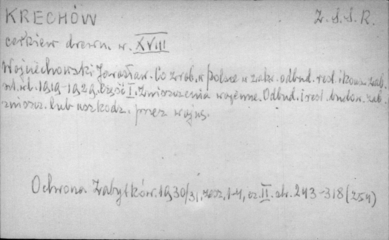 KRECHÓW Z.S.S.R.
cerkiew drewn. w. XVIII
Wojciechowski Jarosław. Co zrob. w Polsce w zakr. odbud. rest. i kons. zab.
1919-1929. Część I. Zniszczenia wojenne. Odbud. i rest. budow. zab.
zniszcz. lub uszkodz. przez wojnę.
Ochrona Zabytków. 1930/31, zesz. 1-4, cz. II. str. 243-318 (254)